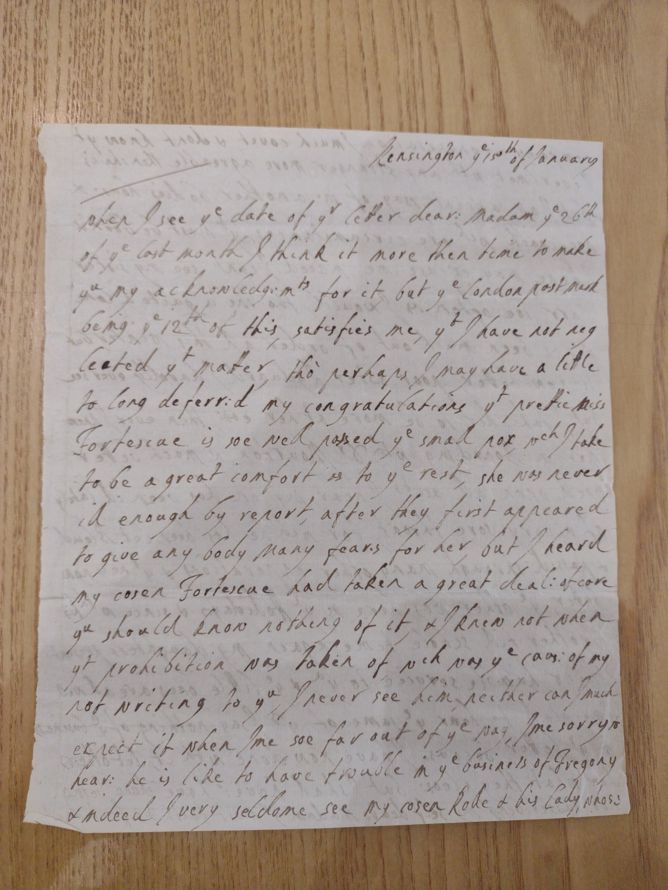 Kensington yᵉ 15ᵗʰ of January
when I see yᵉ date of yʳ letter dear: Madam yᵉ 26ᵗʰ
of yᵉ last month I think it more then time to make
yᵘ my acknowledg:mᵗˢ for it, but yᵉ London post mark
being yᵉ 12ᵗʰ of this satisfies me, yᵗ I have not neg
lected yᵗ matter, tho perhaps I may have a little
to long deferr:d my congratulations yᵗ prettie miss
Fortescue is soe well passed yᵉ small pox wᶜʰ I take
to be a great comfort as to yᵉ rest, she was never
ill enough by report, after they first appeared
to give any body many fears for her but I heard
my cosen Fortescue had taken a great deal: of care
yᵘ should know nothing of it, & I knew not when
yᵗ prohibition was taken of wᶜʰ was yᵉ caus: of my
not writing to yᵘ, I never see him, neither can I much
expect it when I'me soe far out of yᵉ way, I'me sorry to
hear: he is like to have trouble in yᵉ business of Tregony
& indeed I very seldome see my cosen & his Lady, whos: